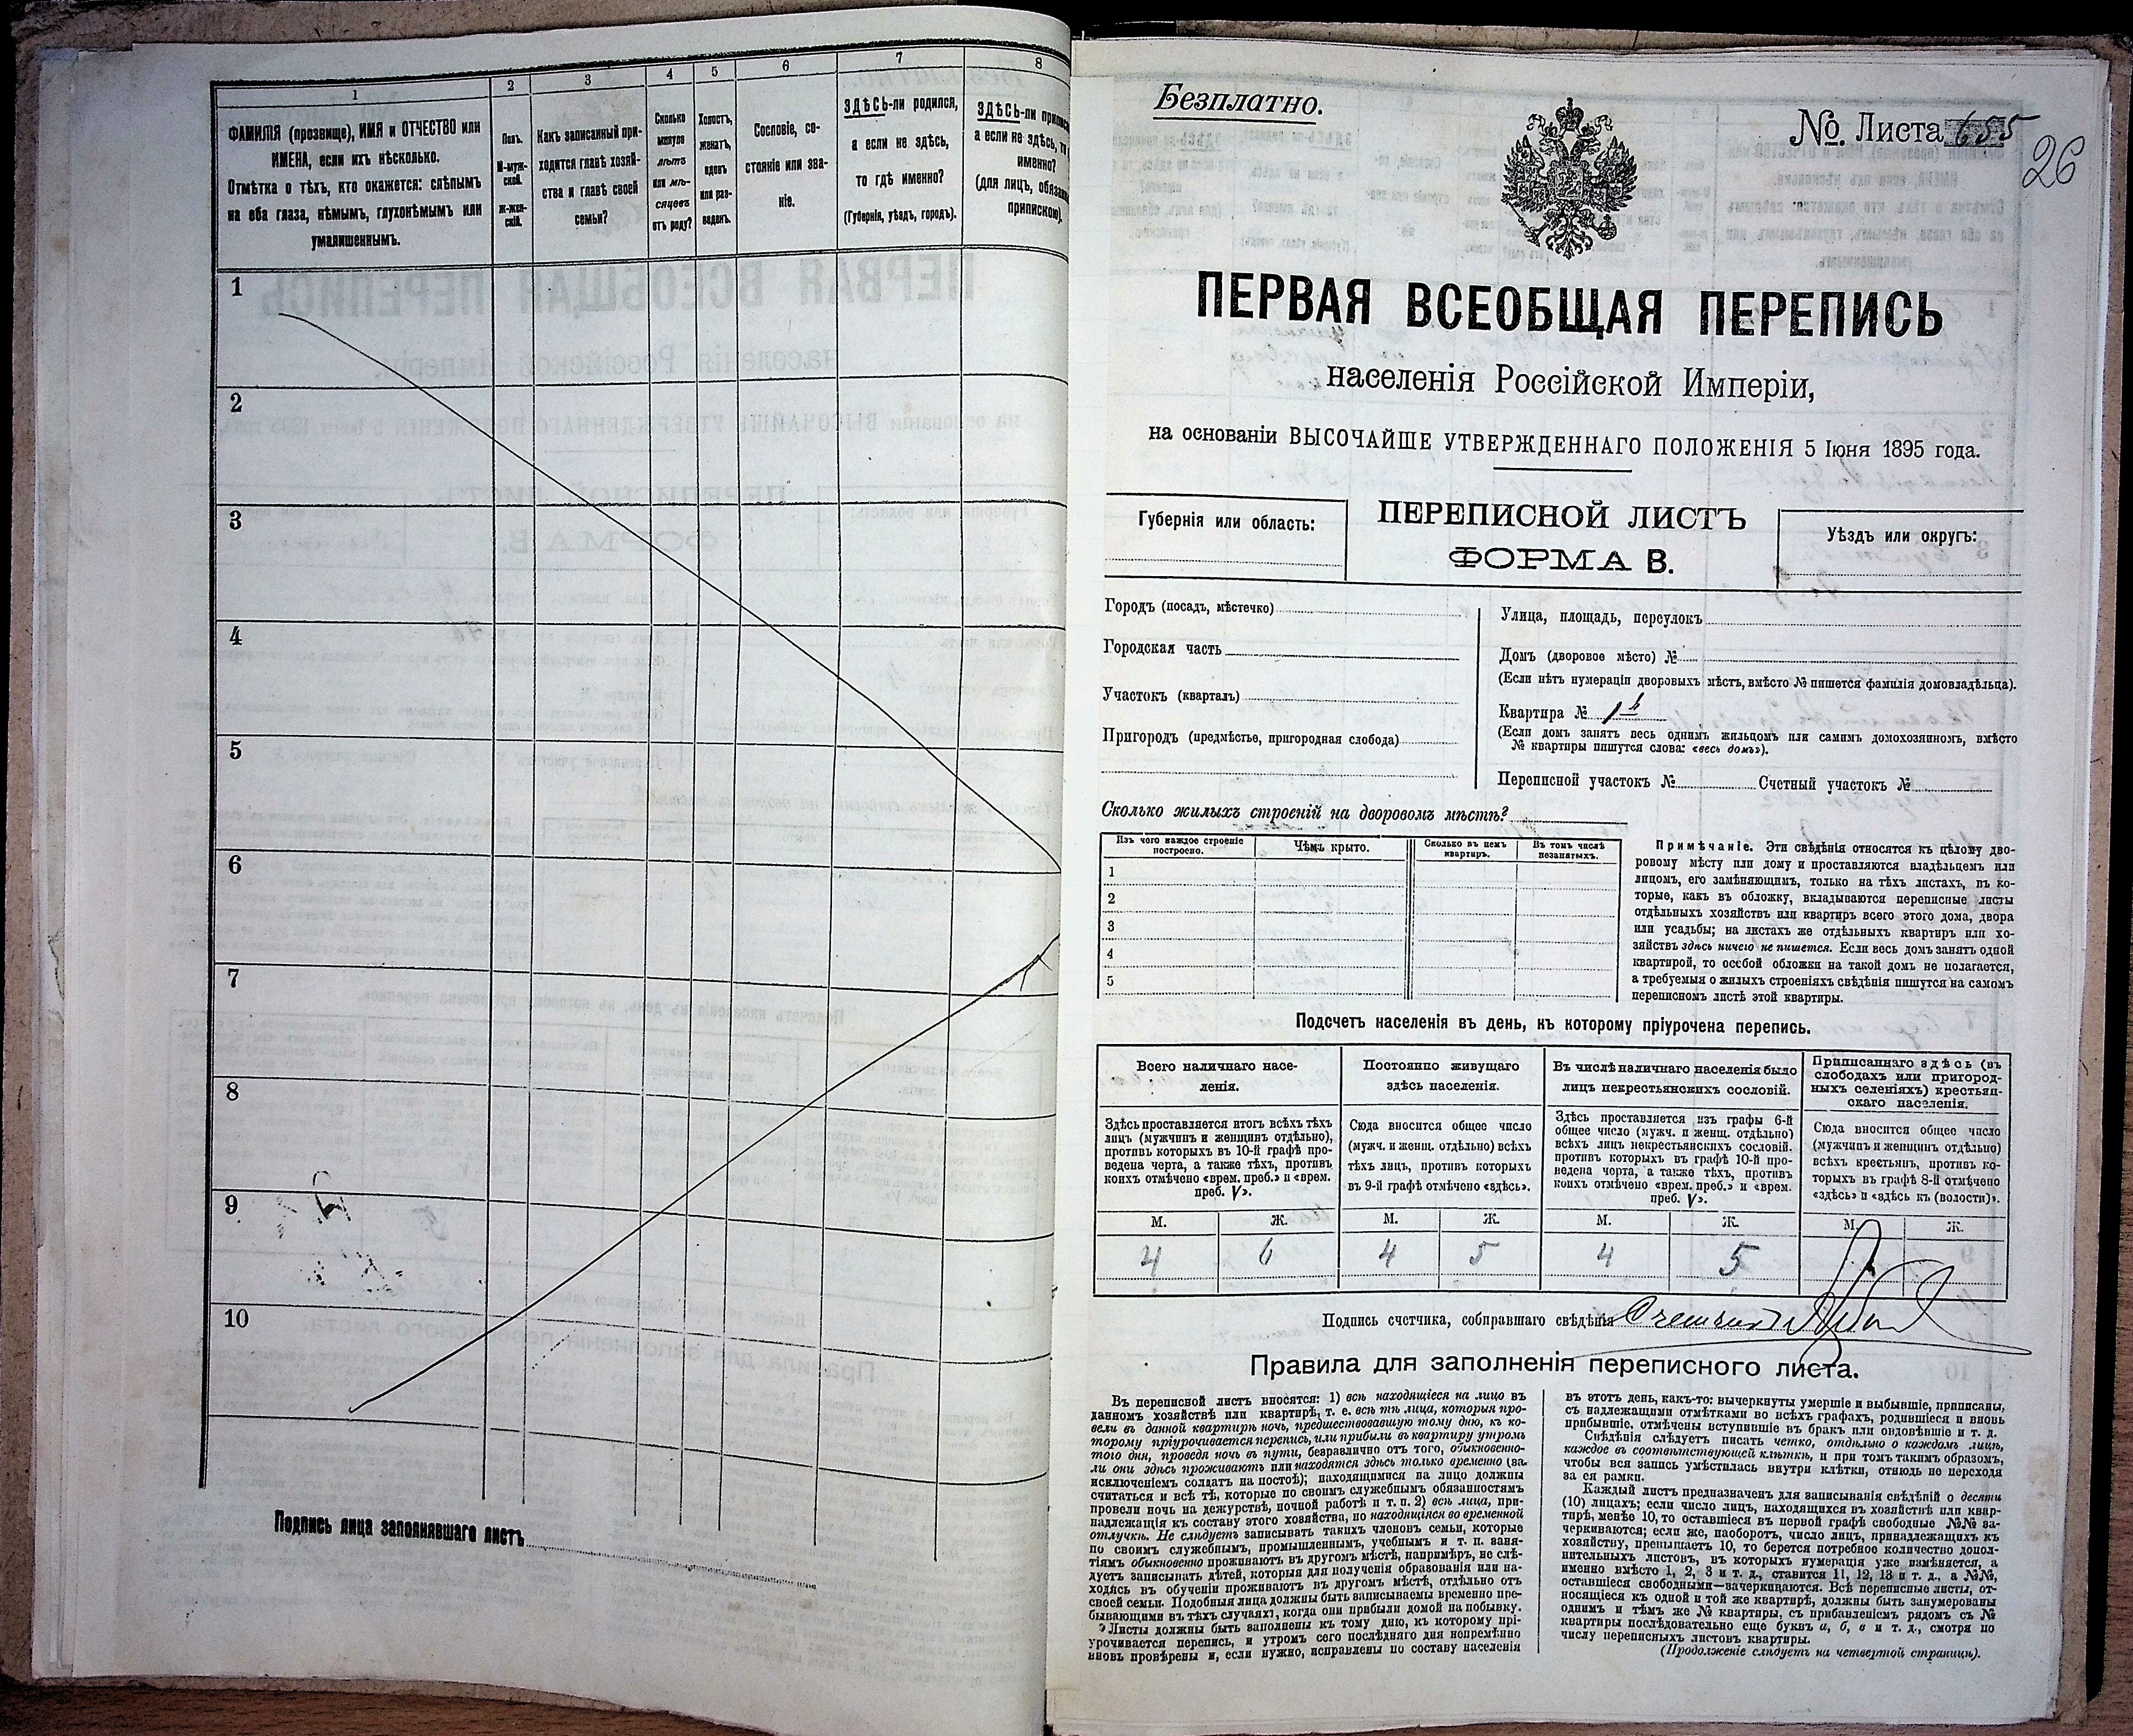 1 2 3 4 5 6 7 8
ФАМИЛІЯ (прозвище), ИМЯ и ОТЧЕСТВО или
ИМЕНА, если ихъ нѣсколько.
Отмѣтка о тѣхъ, кто окажется: слѣпымъ
на оба глаза, нѣмымъ, глухонѣмымъ или
умалишеннымъ.
Полъ.
М-муж-
ской.
Ж-жен-
скій.
Какъ записанный при-
ходится главѣ хозяй-
ства и главѣ своей
семьи?
Сколько
минуло
лѣтъ
или мѣ-
сяцевъ
отъ роду?
Холостъ,
женатъ,
вдовъ
или раз-
веденъ.
Сословіе, со-
стояніе или зва-
ніе.
ЗДѢСЬ-ли родился,
а если не здѣсь,
то гдѣ именно?
(Губернія, уѣздъ, городъ).
ЗДѢСЬ-ли
а если не здѣсь,
именно?
(для лицъ,
припискою).
1
2
3
4
5
6
7
8
9
10
Подпись лица заполнявшаго листъ
Безплатно.
№ Листа 655
26
ПЕРВАЯ ВСЕОБЩАЯ ПЕРЕПИСЬ
населенія Россійской Имперіи,
на основаніи ВЫСОЧАЙШЕ УТВЕРЖДЕННАГО ПОЛОЖЕНІЯ 5 Іюня 1895 года.
Губернія или область:
ПЕРЕПИСНОЙ ЛИСТЪ
ФОРМА В.
Уѣздъ или округъ:
Городъ (посадъ, мѣстечко)
Городская часть
Участокъ (кварталъ)
Пригородъ (предмѣстье, пригородная слобода)
Улица, площадь, переулокъ
Домъ (дворовое мѣсто) №
(Если нѣтъ нумераціи дворовыхъ мѣстъ, вмѣсто № пишется фамилія домовладѣльца).
Квартира №
(Если домъ занятъ весь однимъ жильцомъ или самимъ домохозяиномъ, вмѣсто
№ квартиры пишутся слова: «весь домъ»).
Переписной участокъ № Счетный участокъ №
Сколько жилыхъ строеній на дворовомъ мѣстѣ?
Изъ чего каждое строеніе
построено.
Чѣмъ крыто.
Сколько въ немъ
квартиръ.
Въ томъ числѣ
незанятыхъ.
1
2
3
4
5
Примѣчаніе. Эти свѣдѣнія относятся къ цѣлому дво-
ровому мѣсту или дому и проставляются владѣльцемъ или
лицомъ, его замѣняющимъ, только на тѣхъ листахъ, въ ко-
торые, какъ въ обложку, вкладываются переписные листы
отдѣльныхъ хозяйствъ или квартиръ всего этого дома, двора
или усадьбы; на листахъ же отдѣльныхъ квартиръ или хо-
зяйствъ здѣсь ничего не пишется. Если весь домъ занятъ одной
квартирой, то особой обложки на такой домъ не полагается,
а требуемыя о жилыхъ строеніяхъ свѣдѣнія пишутся на самомъ
переписномъ листѣ этой квартиры.
Подсчетъ населенія въ день, къ которому пріурочена перепись.
Всего наличнаго насе-
ленія.
Постоянно живущаго
здѣсь населенія.
Въ числѣ наличнаго населенія было
лицъ некрестьянскихъ сословій.
Приписаннаго здѣсь (въ
слободахъ или пригород-
ныхъ селеніяхъ) крестьян-
скаго населенія.
Здѣсь проставляется итогъ всѣхъ тѣхъ
лицъ (мужчинъ и женщинъ отдѣльно),
противъ которыхъ въ 10-й графѣ про-
ведена черта, а также тѣхъ, противъ
коихъ отмѣчено «врем. преб.» и «врем.
преб. V».
Сюда вносится общее число
(мужч. и женщ. отдѣльно) всѣхъ
тѣхъ лицъ, противъ которыхъ
въ 9-й графѣ отмѣчено «здѣсь».
Здѣсь проставляется изъ графы 6-й
общее число (мужч. и женщ. отдѣльно)
всѣхъ лицъ некрестьянскихъ сословій.
противъ которыхъ въ графѣ 10-й про-
ведена черта, а также тѣхъ, противъ
коихъ отмѣчено «врем. преб.» и «врем.
преб. V».
Сюда вносится общее число
(мужчинъ и женщинъ отдѣльно)
всѣхъ крестьянъ, противъ ко-
торыхъ въ графѣ 8-й отмѣчено
«здѣсь» и «здѣсь къ (волости)».
М. Ж. М. Ж. М. Ж. М. Ж.
4 6 4 5 4 5
Подпись счетчика, собиравшаго свѣдѣнія
Правила для заполненія переписного листа.
Въ переписной листъ вносятся: 1) всѣ находящіеся на лицо въ
данномъ хозяйствѣ или квартирѣ, т. е. всѣ тѣ лица, которыя про-
вели въ данной квартирѣ ночь, предшествовавшую тому дню, къ ко-
торому пріурочивается перепись, или прибыли въ квартиру утромъ
того дня, проведя ночь въ пути, безразлично отъ того, обыкновенно-
ли они здѣсь проживаютъ или находятся здѣсь только временно (за
исключеніемъ солдатъ на постоѣ); находящимися на лицо должны
считаться и всѣ тѣ, которые по своимъ служебнымъ обязанностямъ
провели ночь на дежурствѣ, ночной работѣ и т. п. 2) всѣ лица, при-
надлежащія къ составу этого хозяйства, но находящіяся во временной
отлучкѣ. Не слѣдуетъ записывать такихъ членовъ семьи, которые
по своимъ служебнымъ, промышленнымъ, учебнымъ и т. п. заня-
тіямъ обыкновенно проживаютъ въ другомъ мѣстѣ, напримѣръ, не слѣ-
дуетъ записывать дѣтей, которыя для полученія образованія или на-
ходясь въ обученіи проживаютъ въ другомъ мѣстѣ, отдѣльно отъ
своей семьи. Подобныя лица должны быть записываемы временно пре-
бывающими въ тѣхъ случаяхъ, когда они прибыли домой на побывку.
Листы должны быть заполнены къ тому дню, къ которому прі-
урочивается перепись, и утромъ сего послѣдняго дня непремѣнно
вновь провѣрены и, если нужно, исправлены по составу населенія
въ этотъ день, какъ-то: вычеркнуты умершіе и выбывшіе, приписаны,
съ надлежащими отмѣтками во всѣхъ графахъ, родившіеся и вновь
прибывшіе, отмѣчены вступившіе въ бракъ или овдовѣвшіе и т. д.
Свѣдѣнія слѣдуетъ писать четко, отдѣльно о каждомъ лицѣ,
каждое въ соотвѣтствующей клѣткѣ, и при томъ такимъ образомъ,
чтобы вся запись умѣстилась внутри клѣтки, отнюдь не переходя
за ея рамки.
Каждый листъ предназначенъ для записыванія свѣдѣній о десяти
(10) лицахъ; если число лицъ, находящихся въ хозяйствѣ или квар-
тирѣ, менѣе 10, то оставшіеся въ первой графѣ свободные №№ за-
черкиваются; если же, наоборотъ, число лицъ, принадлежащихъ къ
хозяйству, превышаетъ 10, то берется потребное количество допол-
нительныхъ листовъ, въ которыхъ нумерація уже измѣняется, а
именно вмѣсто 1, 2, 3 и т. д., ставится 11, 12, 13 и т. д., а №№,
оставшіеся свободными—зачеркиваются. Всѣ переписные листы, от-
носящіеся къ одной и той же квартирѣ, должны быть занумерованы
однимъ и тѣмъ же № квартиры, съ прибавленіемъ рядомъ съ №
квартиры послѣдовательно еще буквъ а, б, в и т. д., смотря по
числу переписныхъ листовъ квартиры.
(Продолженіе слѣдуетъ на четвертой страницѣ).